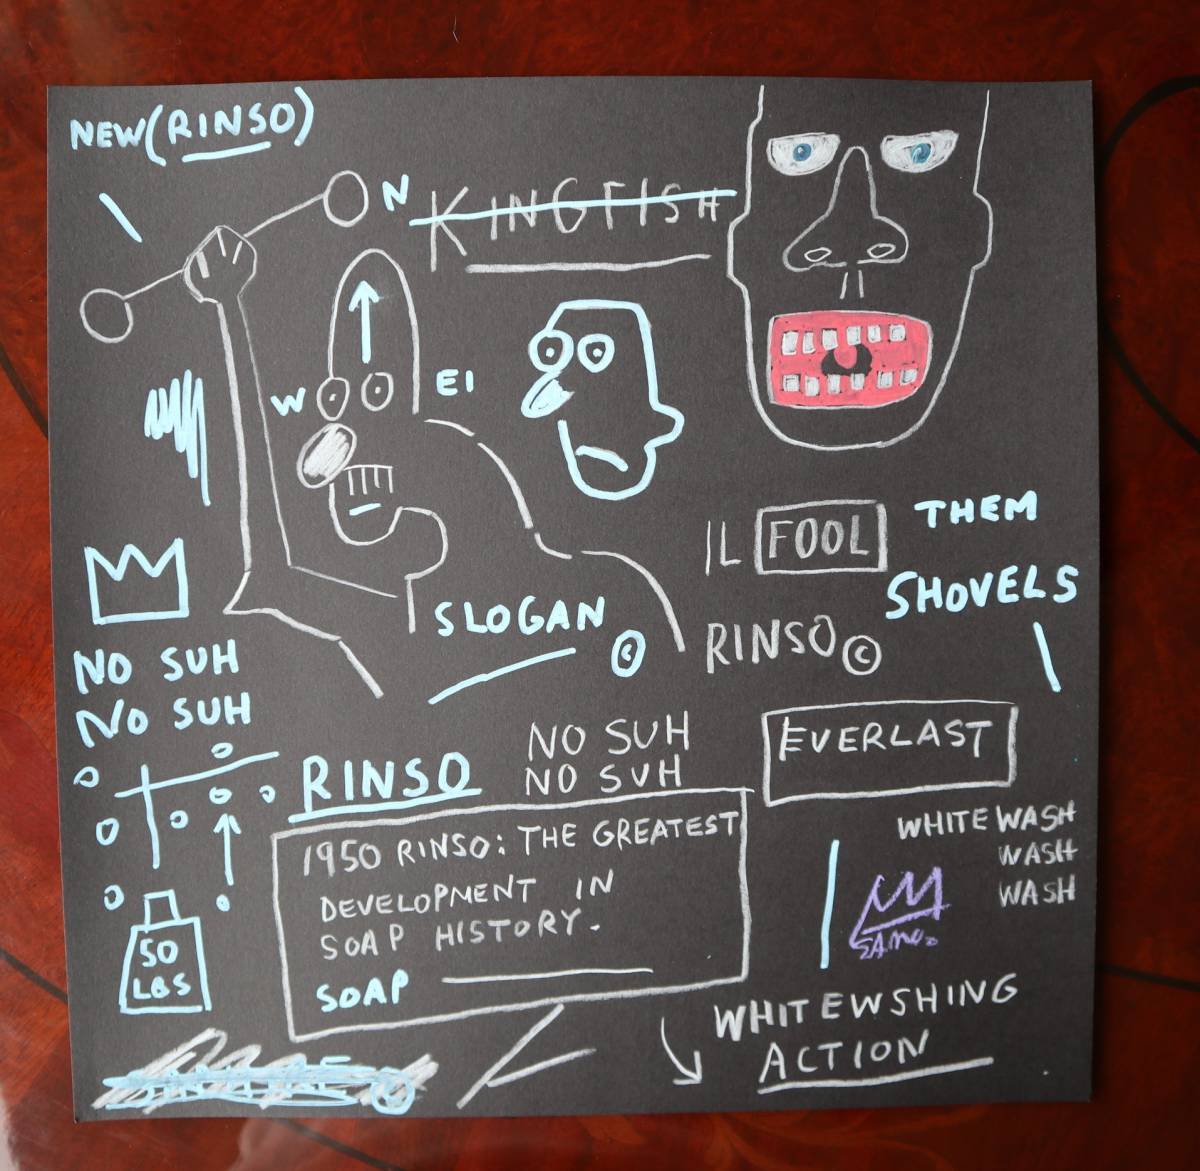 NEW (RINSO)
N
KINGFISH
W
EI
IL FOOL
THEM
SHOVELS
SLOGAN ©
RINSO ©
NO SUH
NO SUH
NO SUH
NO SUH
EVERLAST
RINSO
1950 RINSO: THE GREATEST
DEVELOPMENT IN
SOAP HISTORY.
SOAP
WHITEWASH
WASH
WASH
50
LBS
SAMO.
WHITEWSHING
ACTION